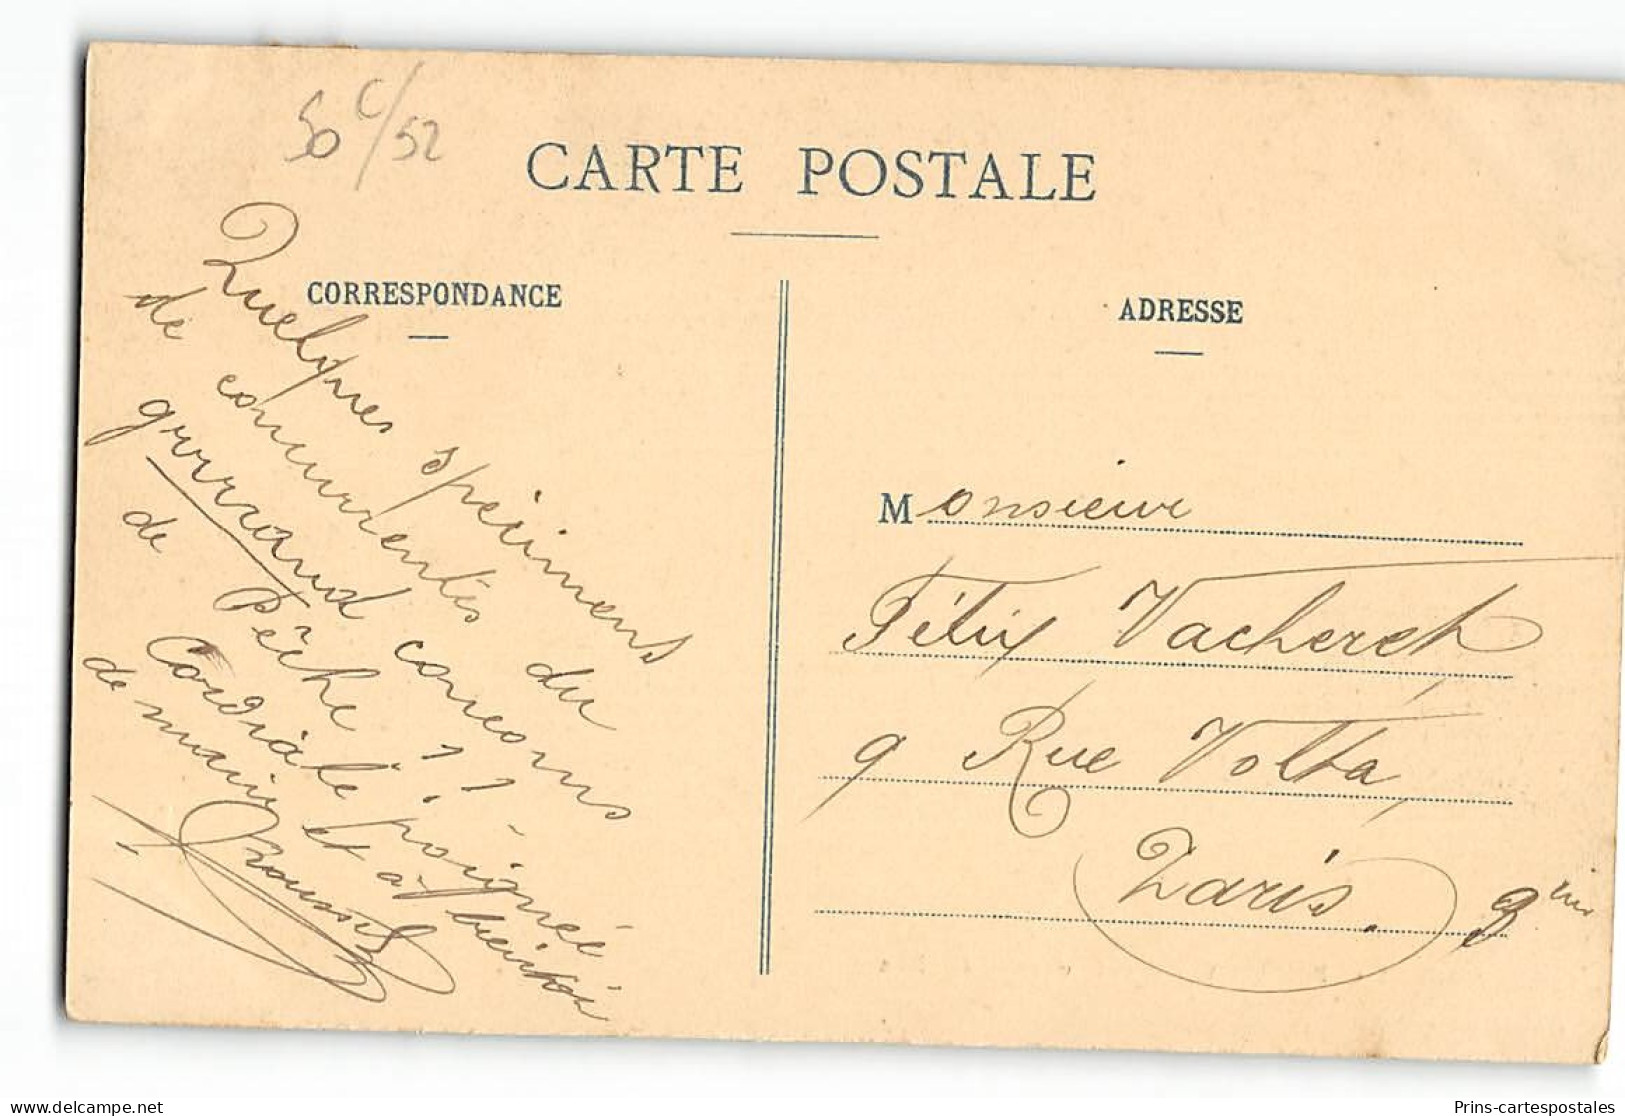 50 c/52
CARTE POSTALE
CORRESPONDANCE
Quelques specimens
de concurrentes du
grrrrand concours
de Pêche !!
Cordiale poignée
de main et à bientôt
ADRESSE
Monsieur
Félix Vacheret
9 Rue Volta,
Paris. 3eme
Prins-cartespostales